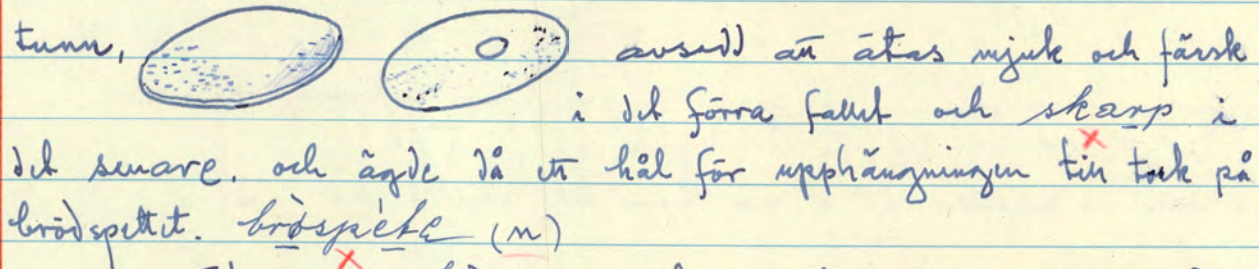 tunn, avsedd att ätas mjuk och färsk
i det förra fallet och skarp i
det senare. och ägde då ett hål för upphängningen till tork på
brödspettet. bröspète (n)